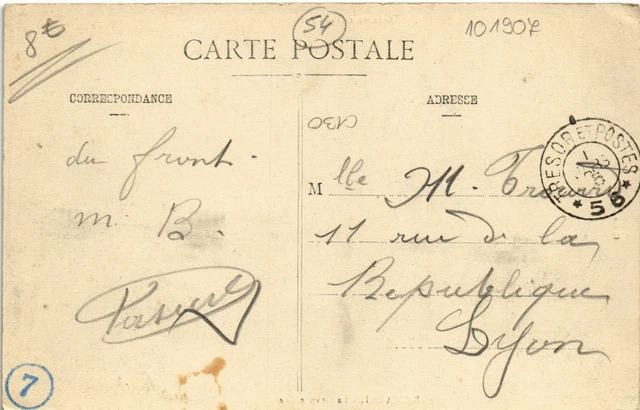 8€
54
101907
CARTE POSTALE
CORRESPONDANCE
ADRESSE
C130
du front.
m. B.
Mlle M.
11 rue de la
Republique
Lyon
TRESOR ET POSTES
* 56 *
7